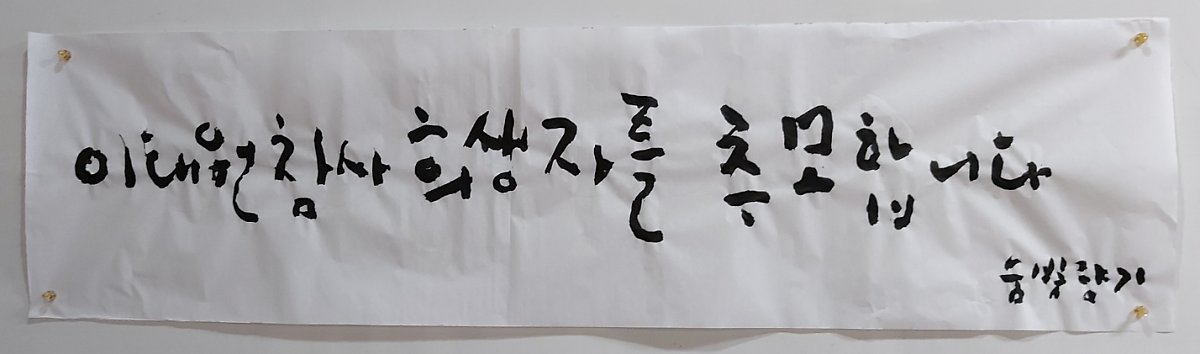 이태원참사 희생자를 추모합니다
숨빛향기